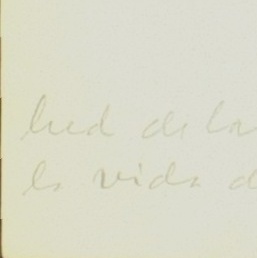 hed de la
la vida d